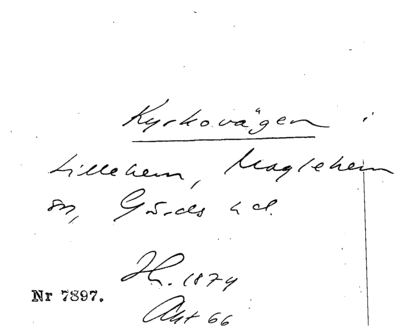 Kyrkovägen i
Lillehem, Maglehem
sn, Gärds hd.
H. 1879
Akt 66
Nr 7897.